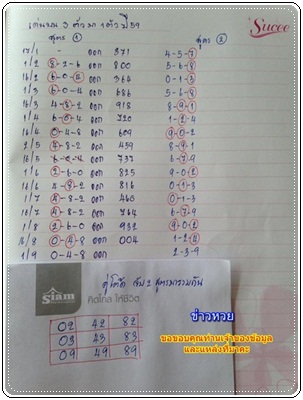 เด่นบน 3 ตัวมา 1 ตัว ปี 59
สูตร 1 สูตร 2
Sucee
17/1 - ออก 371 4-5-7
1/2 8-2-6 ออก 800 5-6-8
16/2 6-0-4 ออก 364 0-1-3
1/3 6-0-4 ออก 686 5-6-8
16/3 4-8-2 ออก 918 8-9-1
1/4 6-0-4 ออก 720 1-2-4
16/4 0-4-8 ออก 609 9-0-2
2/5 4-8-2 ออก 459 8-9-1
16/5 6-0-4 ออก 737 6-7-9
1/6 2-6-0 ออก 825 9-0-2
16/6 4-8-2 ออก 816 0-1-3
1/7 4-8-2 ออก 460 0-1-3
16/7 4-8-2 ออก 764 6-7-9
1/8 2-6-0 ออก 932 9-0-2
16/8 0-4-8 ออก 004 1-2-4
1/9 0-4-8 2-3-9
คู่โต๊ด จับ 2 สูตรมารวมกัน
Siam
คิดไกล ให้ชีวิต
02 42 82
03 43 83
09 49 89
ข่าวหวย
ขอขอบคุณท่านเจ้าของข้อมูล
และแหล่งที่มาค่ะ